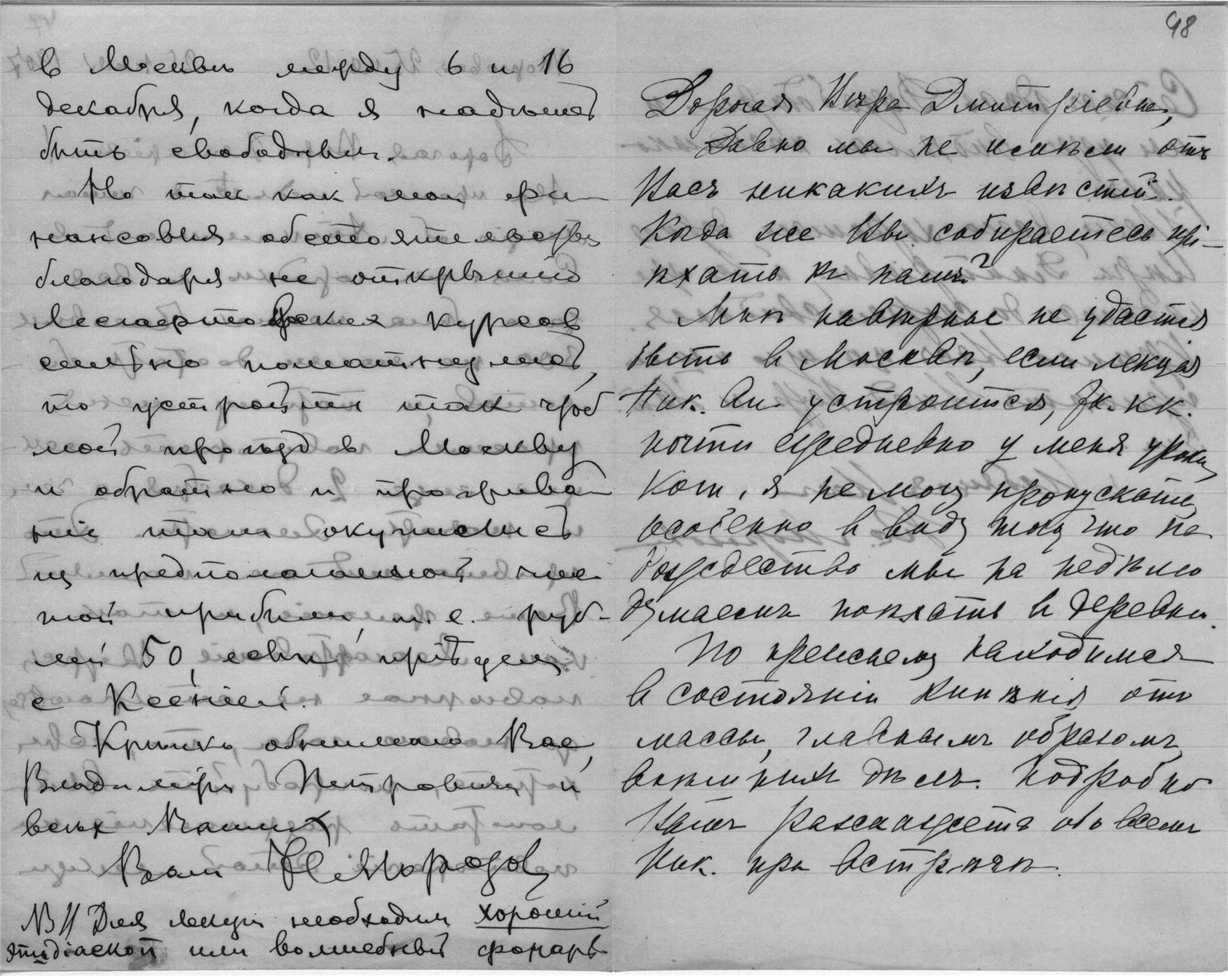 в Москвѣ между 6 и 16
декабря, когда я надѣюсь
быть свободнымъ.
Но так как мои фи-
нансовыя обстоятельства
благодаря не открытію
Лесгафтовских курсов
сильно пошатнулись,
то устройте так чтоб
мой проѣзд в Москву
и обратно и прожива-
ніе там окупились
из предполагаемой
прибыли, т. е. руб-
лей 50, если пріѣду
с Ксеніей.
Крѣпко обнимаю Вас,
Владиміра Петровича и
всѣх Ваших
Ваш Н. Морозов
NB // Для лекціи необходим хорошій
эпидіаскоп или волшебный фонарь
98
Дорогая Вѣра Дмитріевна,
Давно мы не имѣем отъ
Васъ никакихъ извѣстій.
Когда же Вы собираетесь прі-
ѣхать къ намъ?
Мнѣ навѣрное не удастся
быть в Москвѣ, если лекція
Ник. Ал. устроится, т. к.
почти ежедневно у меня уроки,
кот. я не могу пропускать,
особенно в виду того что на
Рождество мы на недѣлю
думаемъ поѣхать в деревню.
По прежнему находимся
в состояніи кипѣнія отъ
массы, главнымъ образомъ,
всякихъ дѣлъ. Подробно
Вамъ разскажетъ обо всемъ
Ник. при встрѣчѣ.